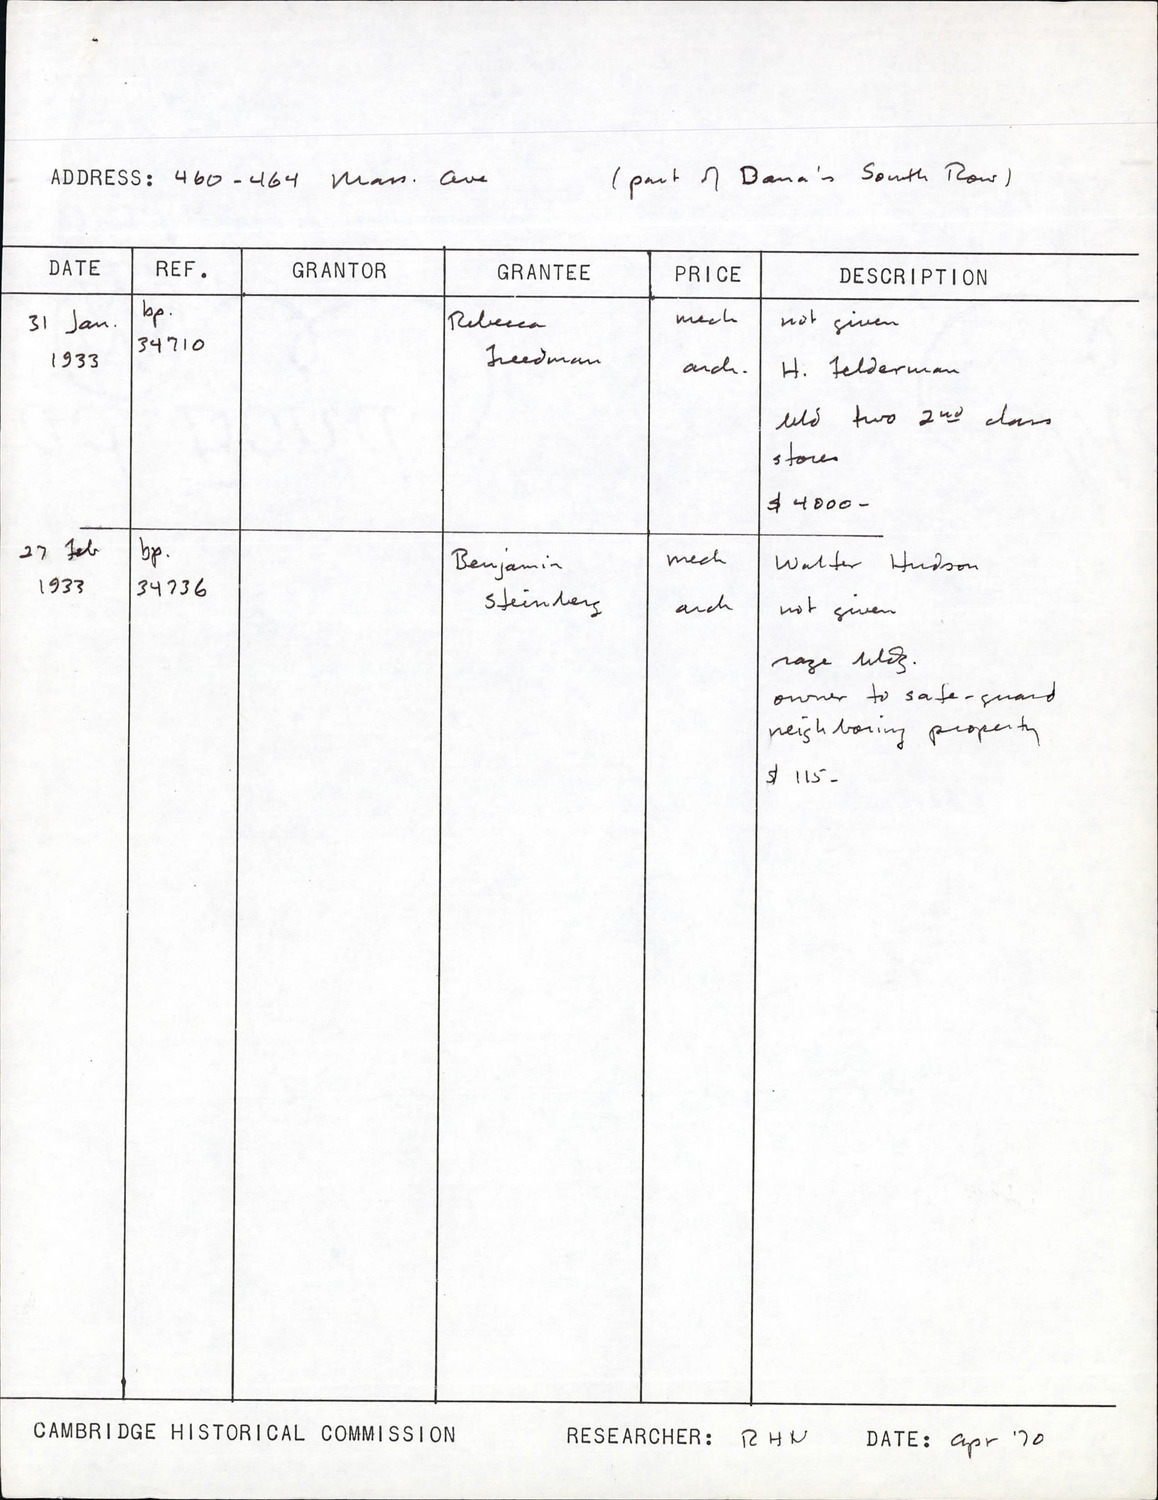 ADDRESS: 460-464 Mass. Ave (part of Dana's South Row)
DATE REF. GRANTOR GRANTEE PRICE DESCRIPTION
31 Jan. 1933
bp. 34710
Rebecca
Freedman
mech not given
arch. H. Felderman
bld two 2nd class
stores
$ 4000-
27 Feb 1933
bp. 34736
Benjamin
Steinberg
mech Walter Hudson
arch not given
raze bldg.
owner to safe-guard
neighboring property
$ 115-
CAMBRIDGE HISTORICAL COMMISSION RESEARCHER: RHN DATE: apr '70